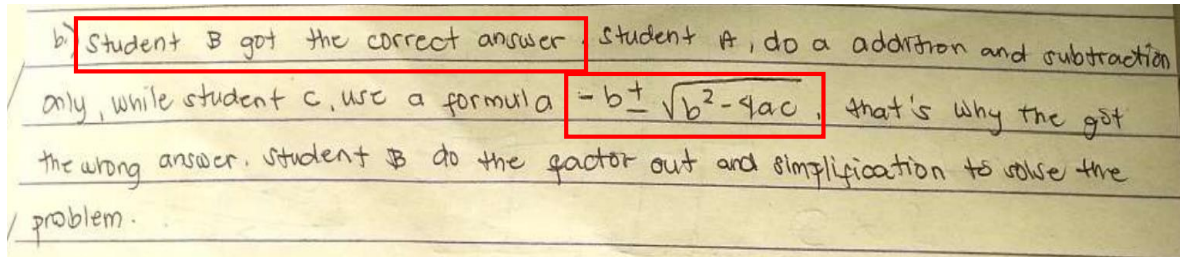 b.) Student B got the correct answer. Student A, do a addition and subtraction
only, while student C, use a formula -b± √b²-4ac, that's why the got
the wrong answer. Student B do the factor out and simplification to solve the
problem.